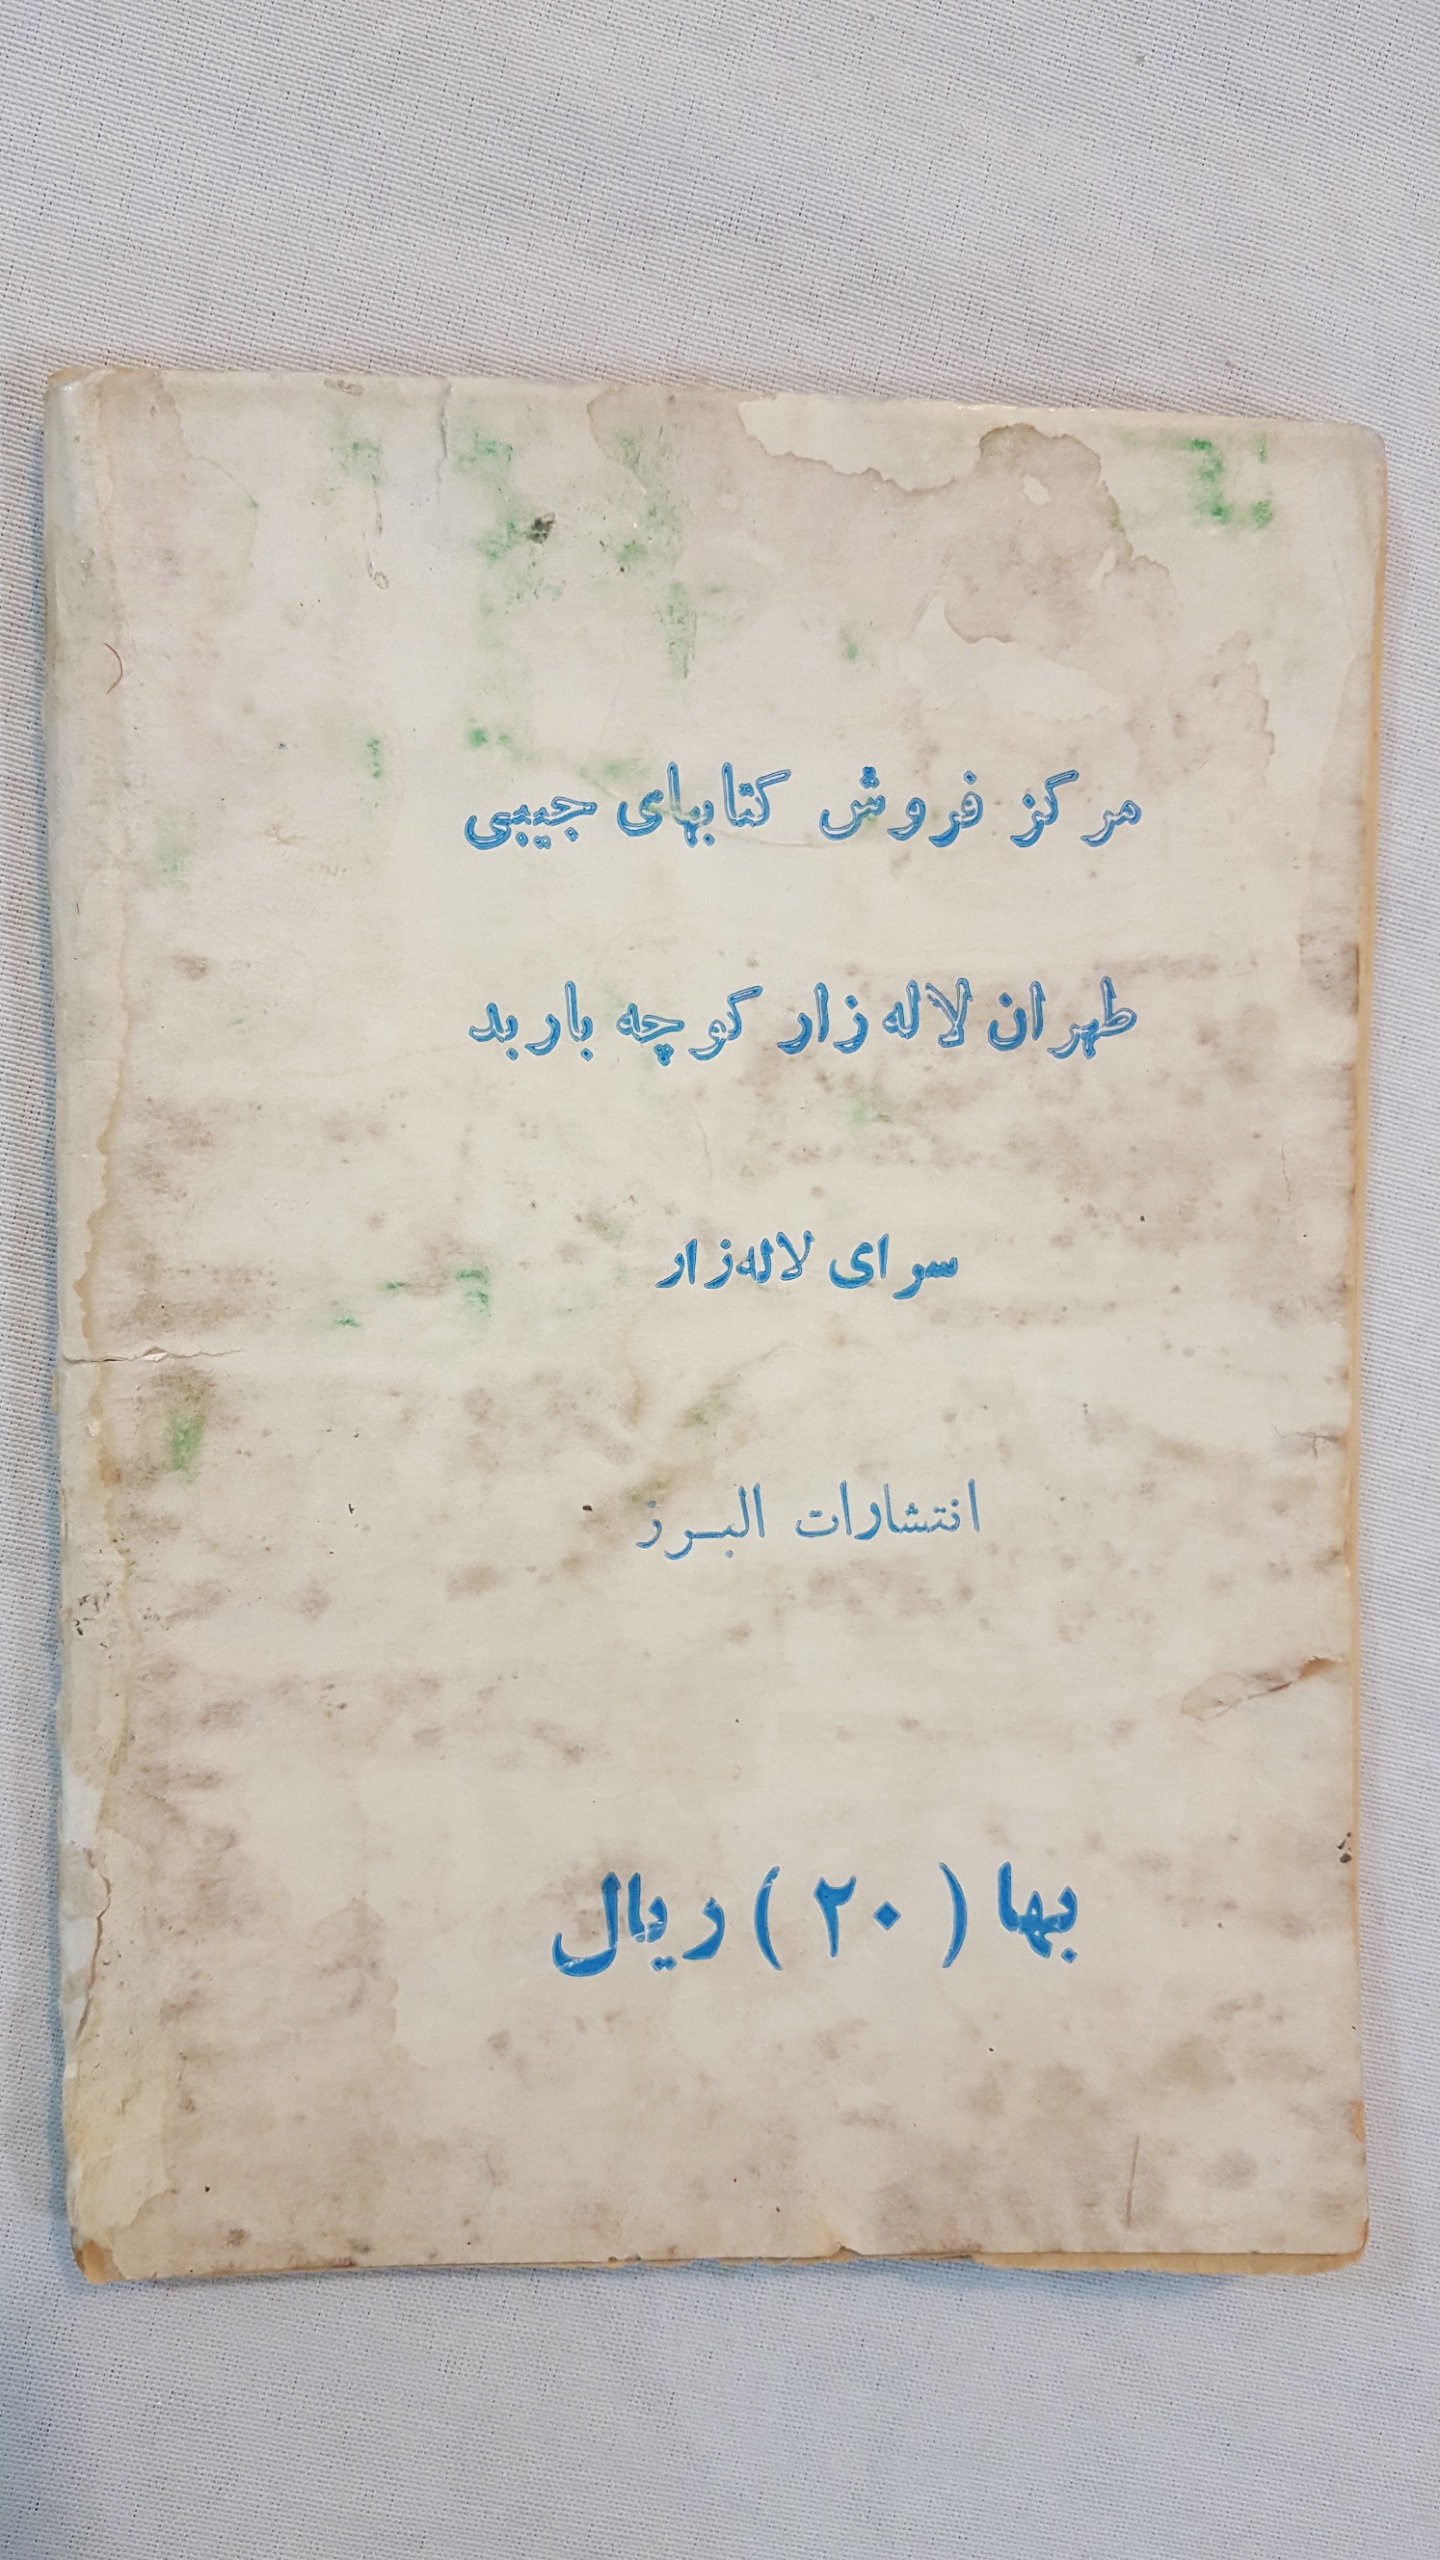 مرکز فروش کتابهای جیبی
طهران لاله‌زار کوچه باربد
سرای لاله‌زار
انتشارات البرز
بها ( ۲۰ ) ریال